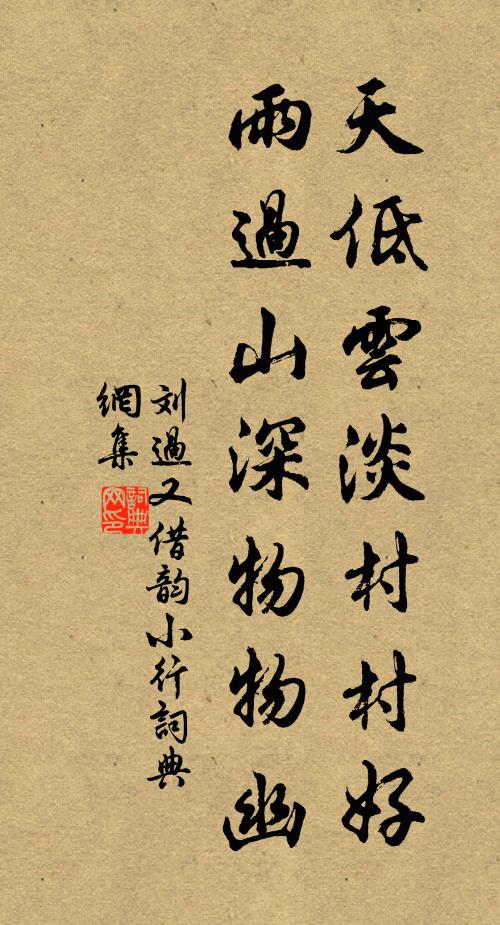 天低雲淡村村好
雨過山深物物幽
刘過又借韵小行詞典
網集
詞典
网印